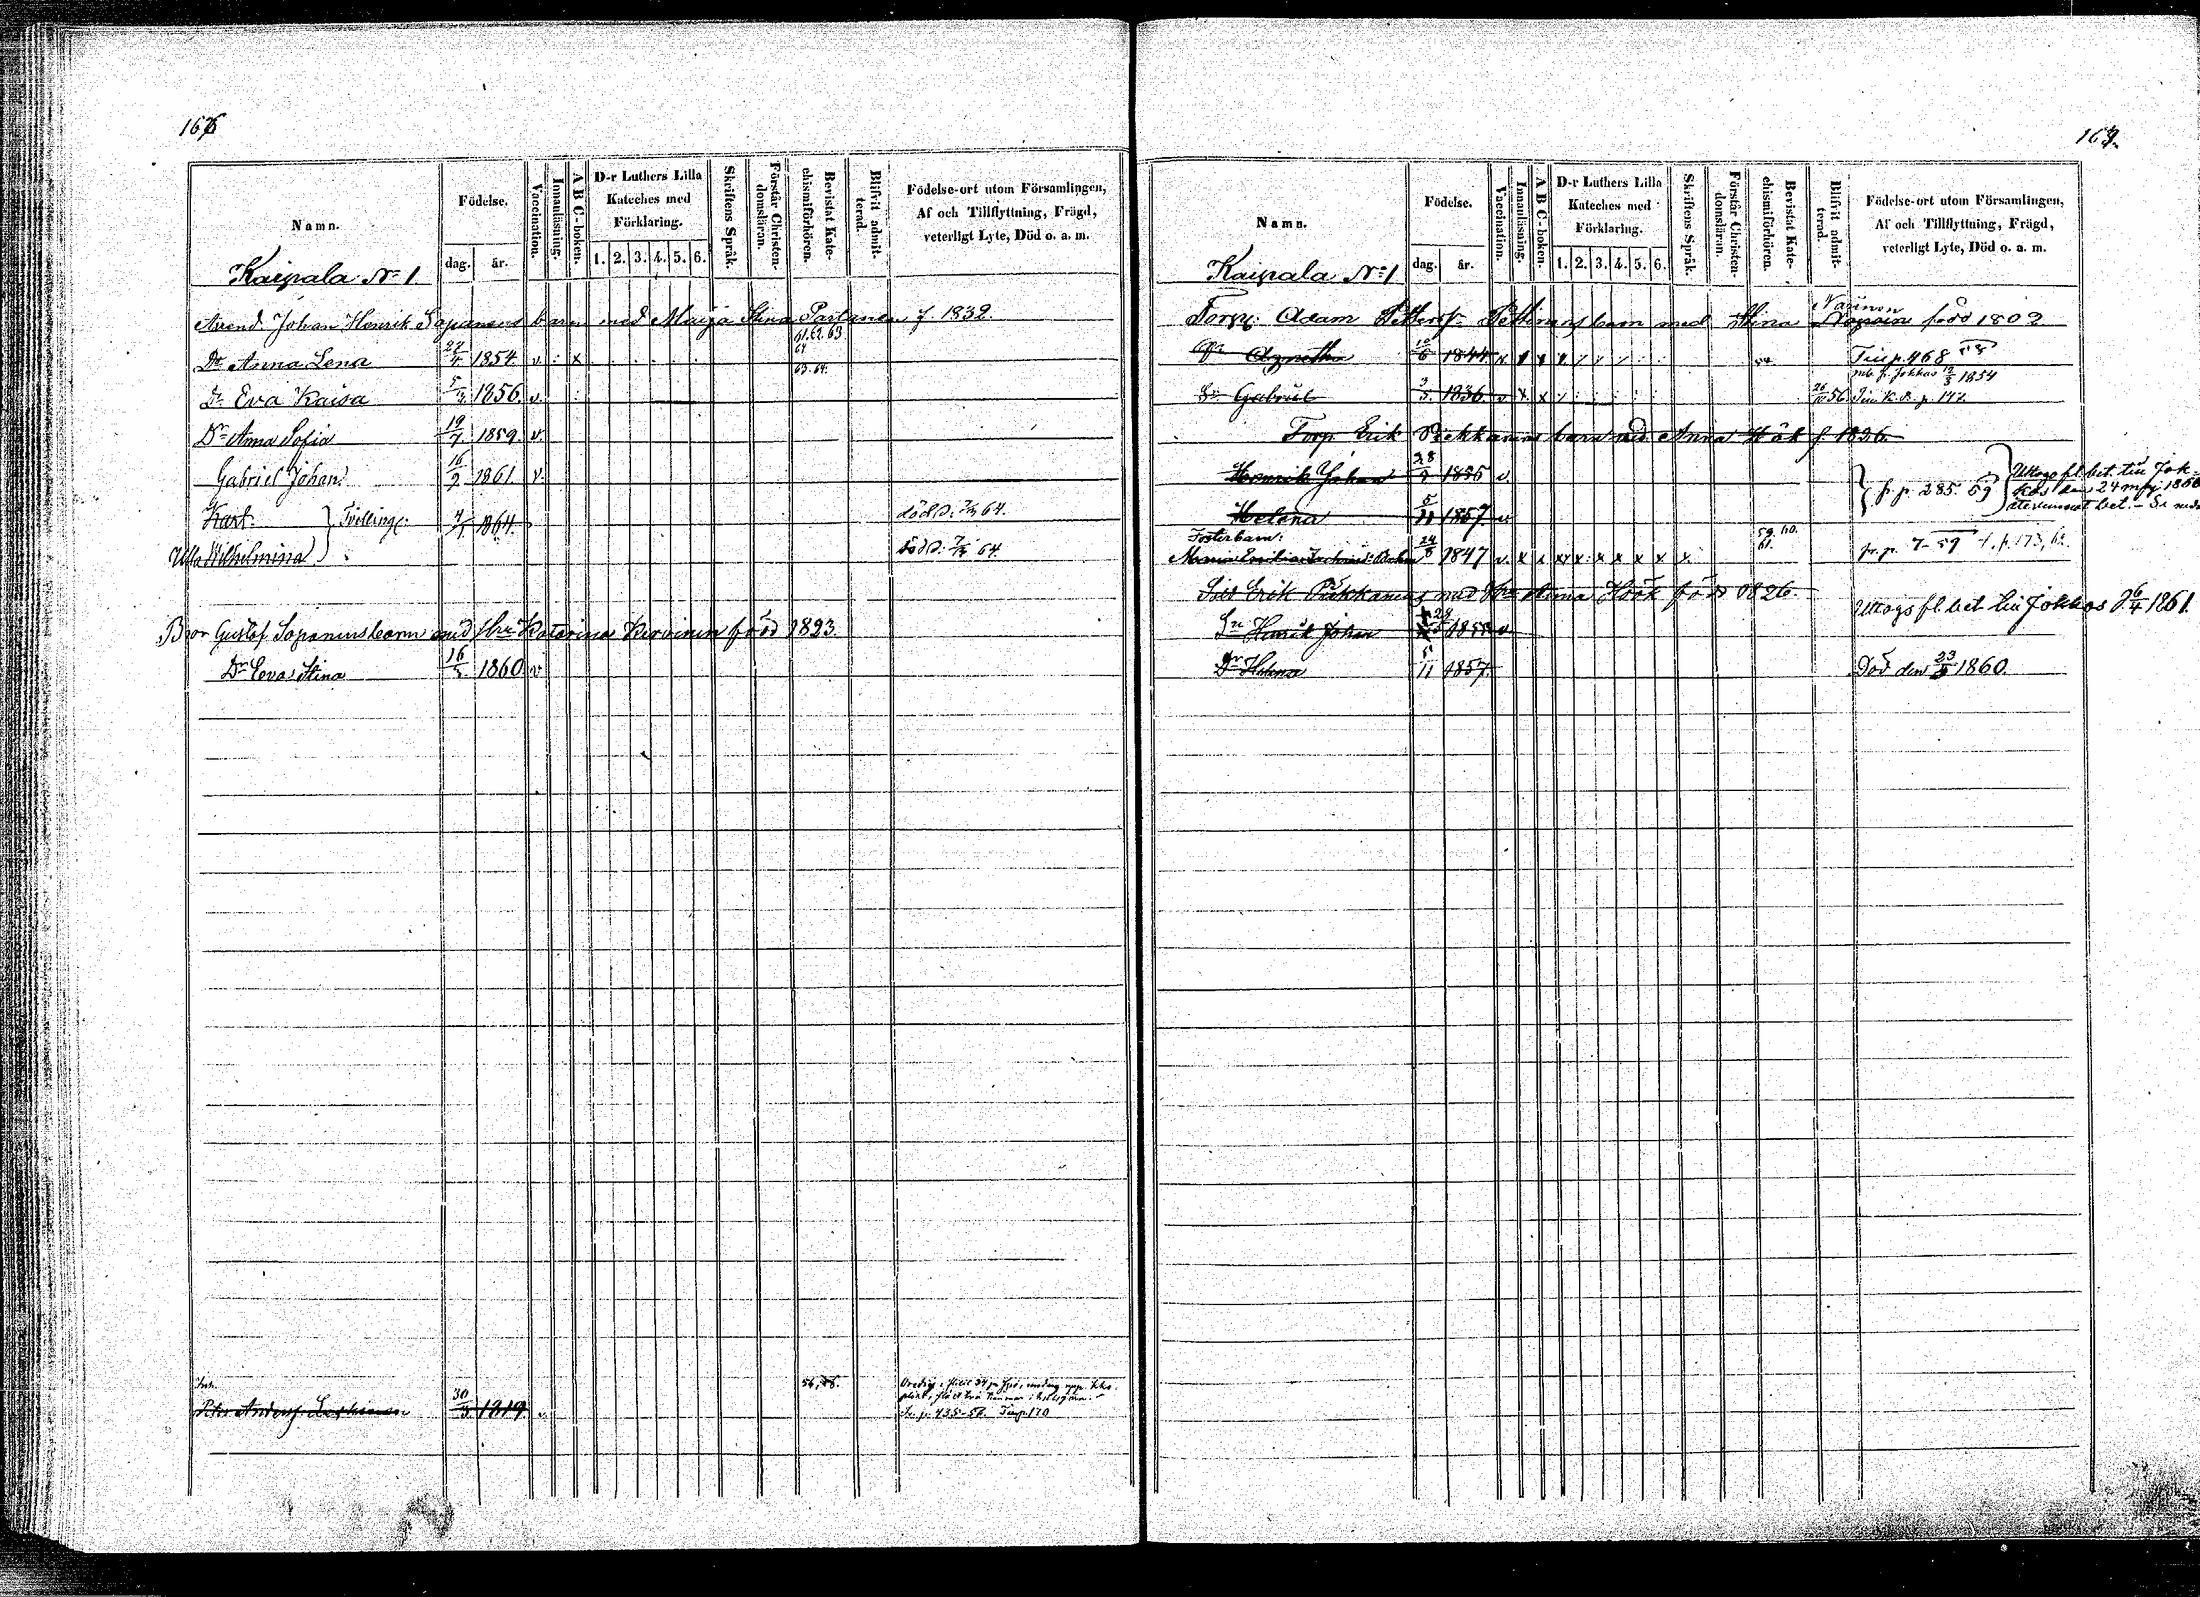 166
Namn.
Födelse.
dag.
år.
Vaccination.
Innanläsning.
A B C-boken.
D-r Luthers Lilla
Kateches med
Förklaring.
1. 2. 3. 4. 5. 6.
Skriftens Språk.
Förstår Christen-
domsläran.
Bevistat Kate-
chismiförhören.
Blifvit admit-
terad.
Födelse-ort utom Församlingen,
Af och Tillflyttning, Frägd,
veterligt Lyte, Död o. a. m.
Kaipala No 1.
Arend. Johan Henrik Sapanens barn med Maija Stina Partanen f 1832.
61. 62. 63.
64
Dr Anna Lena 1854 v. x
63. 64.
Dr Eva Kaisa 1856. v.
Dr Anna Sofia 19/7. 1859. v.
Gabriel Johan 16/2 1861 v.
Karl } Tvilling 4/1. 1864. död d. 64.
Ulla Wilhelmina död d. 64.
Bror Gustaf Sapanens barn med hu Katarina Kervinen född 1823.
Dr Eva Stina 16/5. 1860. v
Inh.
Peter Andersf. 30/3 1819. v. 56,
p. 435-58. Tui p. 170
167.
Namn.
Födelse.
dag.
år.
Vaccination.
Innanläsning.
A B C-boken.
D-r Luthers Lilla
Kateches med
Förklaring.
1. 2. 3. 4. 5. 6.
Skriftens Språk.
Förstår Christen-
domsläran.
Bevistat Kate-
chismiförhören.
Blifvit admit-
terad.
Födelse-ort utom Församlingen,
Af och Tillflyttning, Frägd,
veterligt Lyte, Död o. a. m.
Kaipala No 1
Narinen
Torp. Adam Petterf. barn med Stina född 1802
Dr Agnetha 10/6 1844. x x x x Tui p. 468
Jokkas 12/3 1854
Sn Gabriel 3/5. 1836. v x x 56 Tui K. B. p. 147.
Torp Erik Piekkanens barn med Anna Höök f. 1826.
Henrik Johan 28/9 1855 v. } fr. p. 285. 59 } Uttogo fl. bet. till Jok-
kas den 24 1860
återlemnat bet. -
Helena 5/11 1857
Fosterbarn: 59. 60.
61.
Maria Emilia 24/8 1847 v. x x x x x x x x x. fr. p. 7-59 173,
Erik Piekkanens med hu Anna Höök född 1826.
Uttogs fl. bet till Jokkas d 6/4 1861.
Sn Henrik Johan 1855 v
Dr Helena 5/11 1857. Död den 1860.